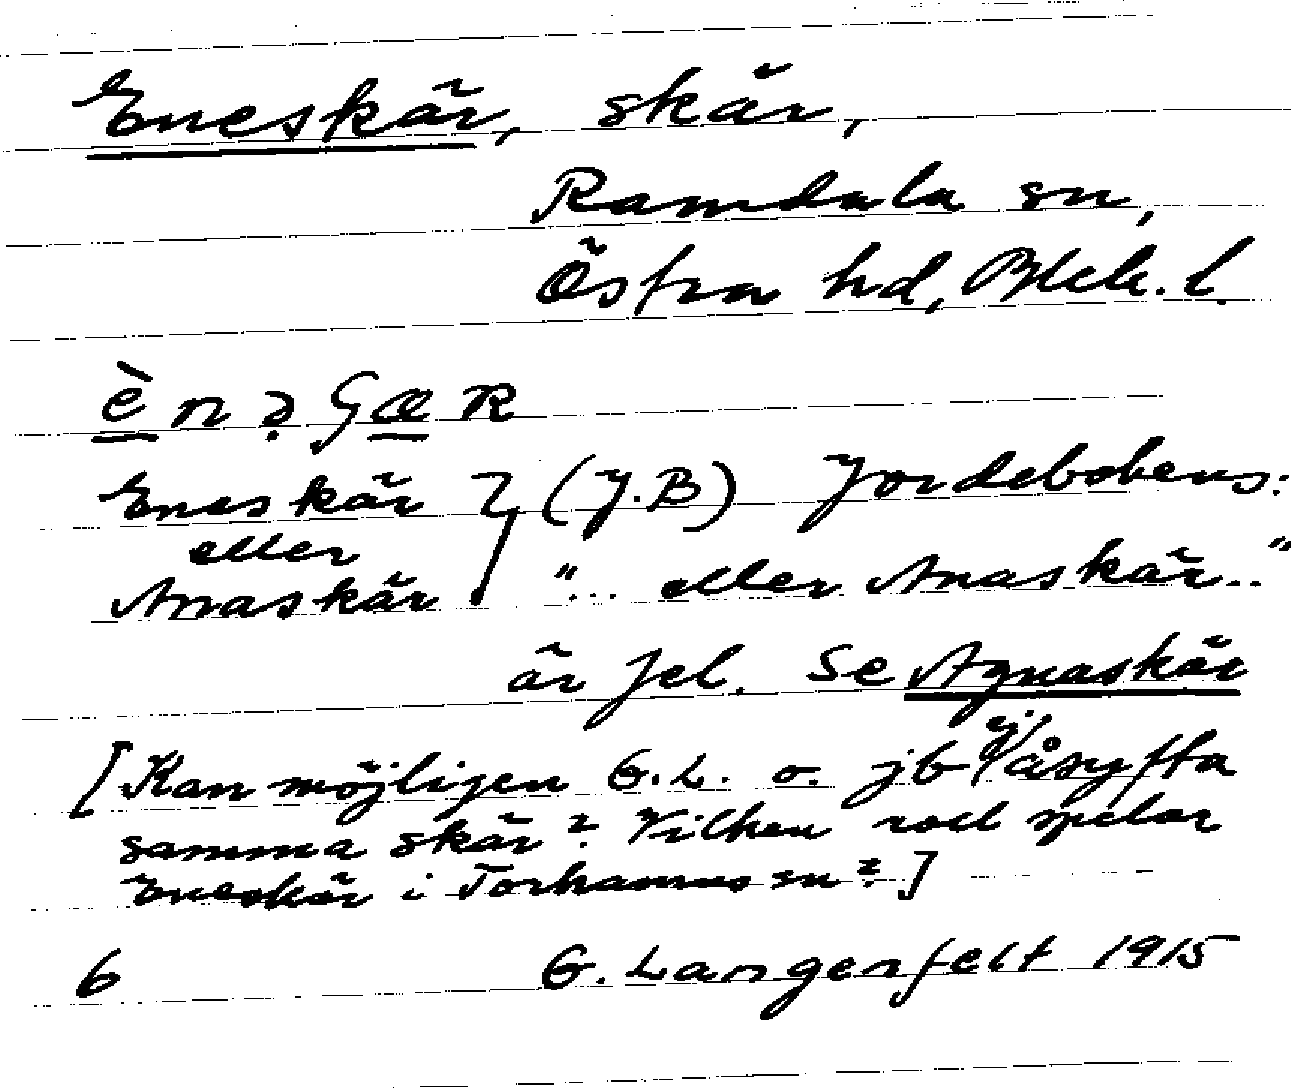 Eneskär, skär,
Ramdala sn,
Östra hd, Blek. l.
è n ə ʃ æ R
Eneskär } (J.B) Jordebokens:
eller
Anaskär "... eller Anaskär.."
är fel. Se Agnaskär
[Kan möjligen G.L. o. jb ej åsyfta
samma skär? Vilken roll spelar
Eneskär i Torhamns sn?]
6 G. Langenfelt 1915